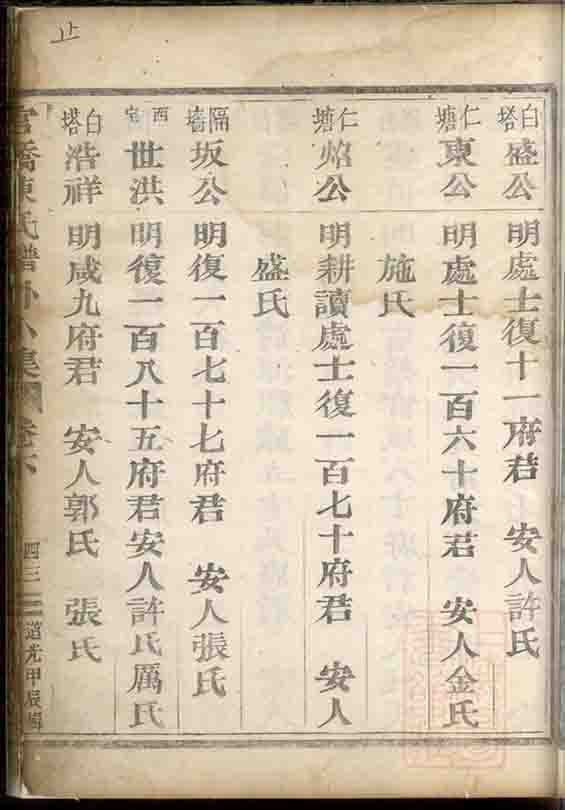 止
白塔 盛公 明處士復十一府君 安人許氏
仁塘 東公 明處士復一百六十府君 安人金氏
施氏
仁塘 焰公 明耕讀處士復一百七十府君 安人
盛氏
隔墻 坂公 明復一百七十七府君 安人張氏
西宅 世洪 明復一百八十五府君安人許氏厲氏
白塔 浩祥 明咸九府君 安人郭氏 張氏
官橋陳氏譜外八集 卷六 四三 道光甲辰